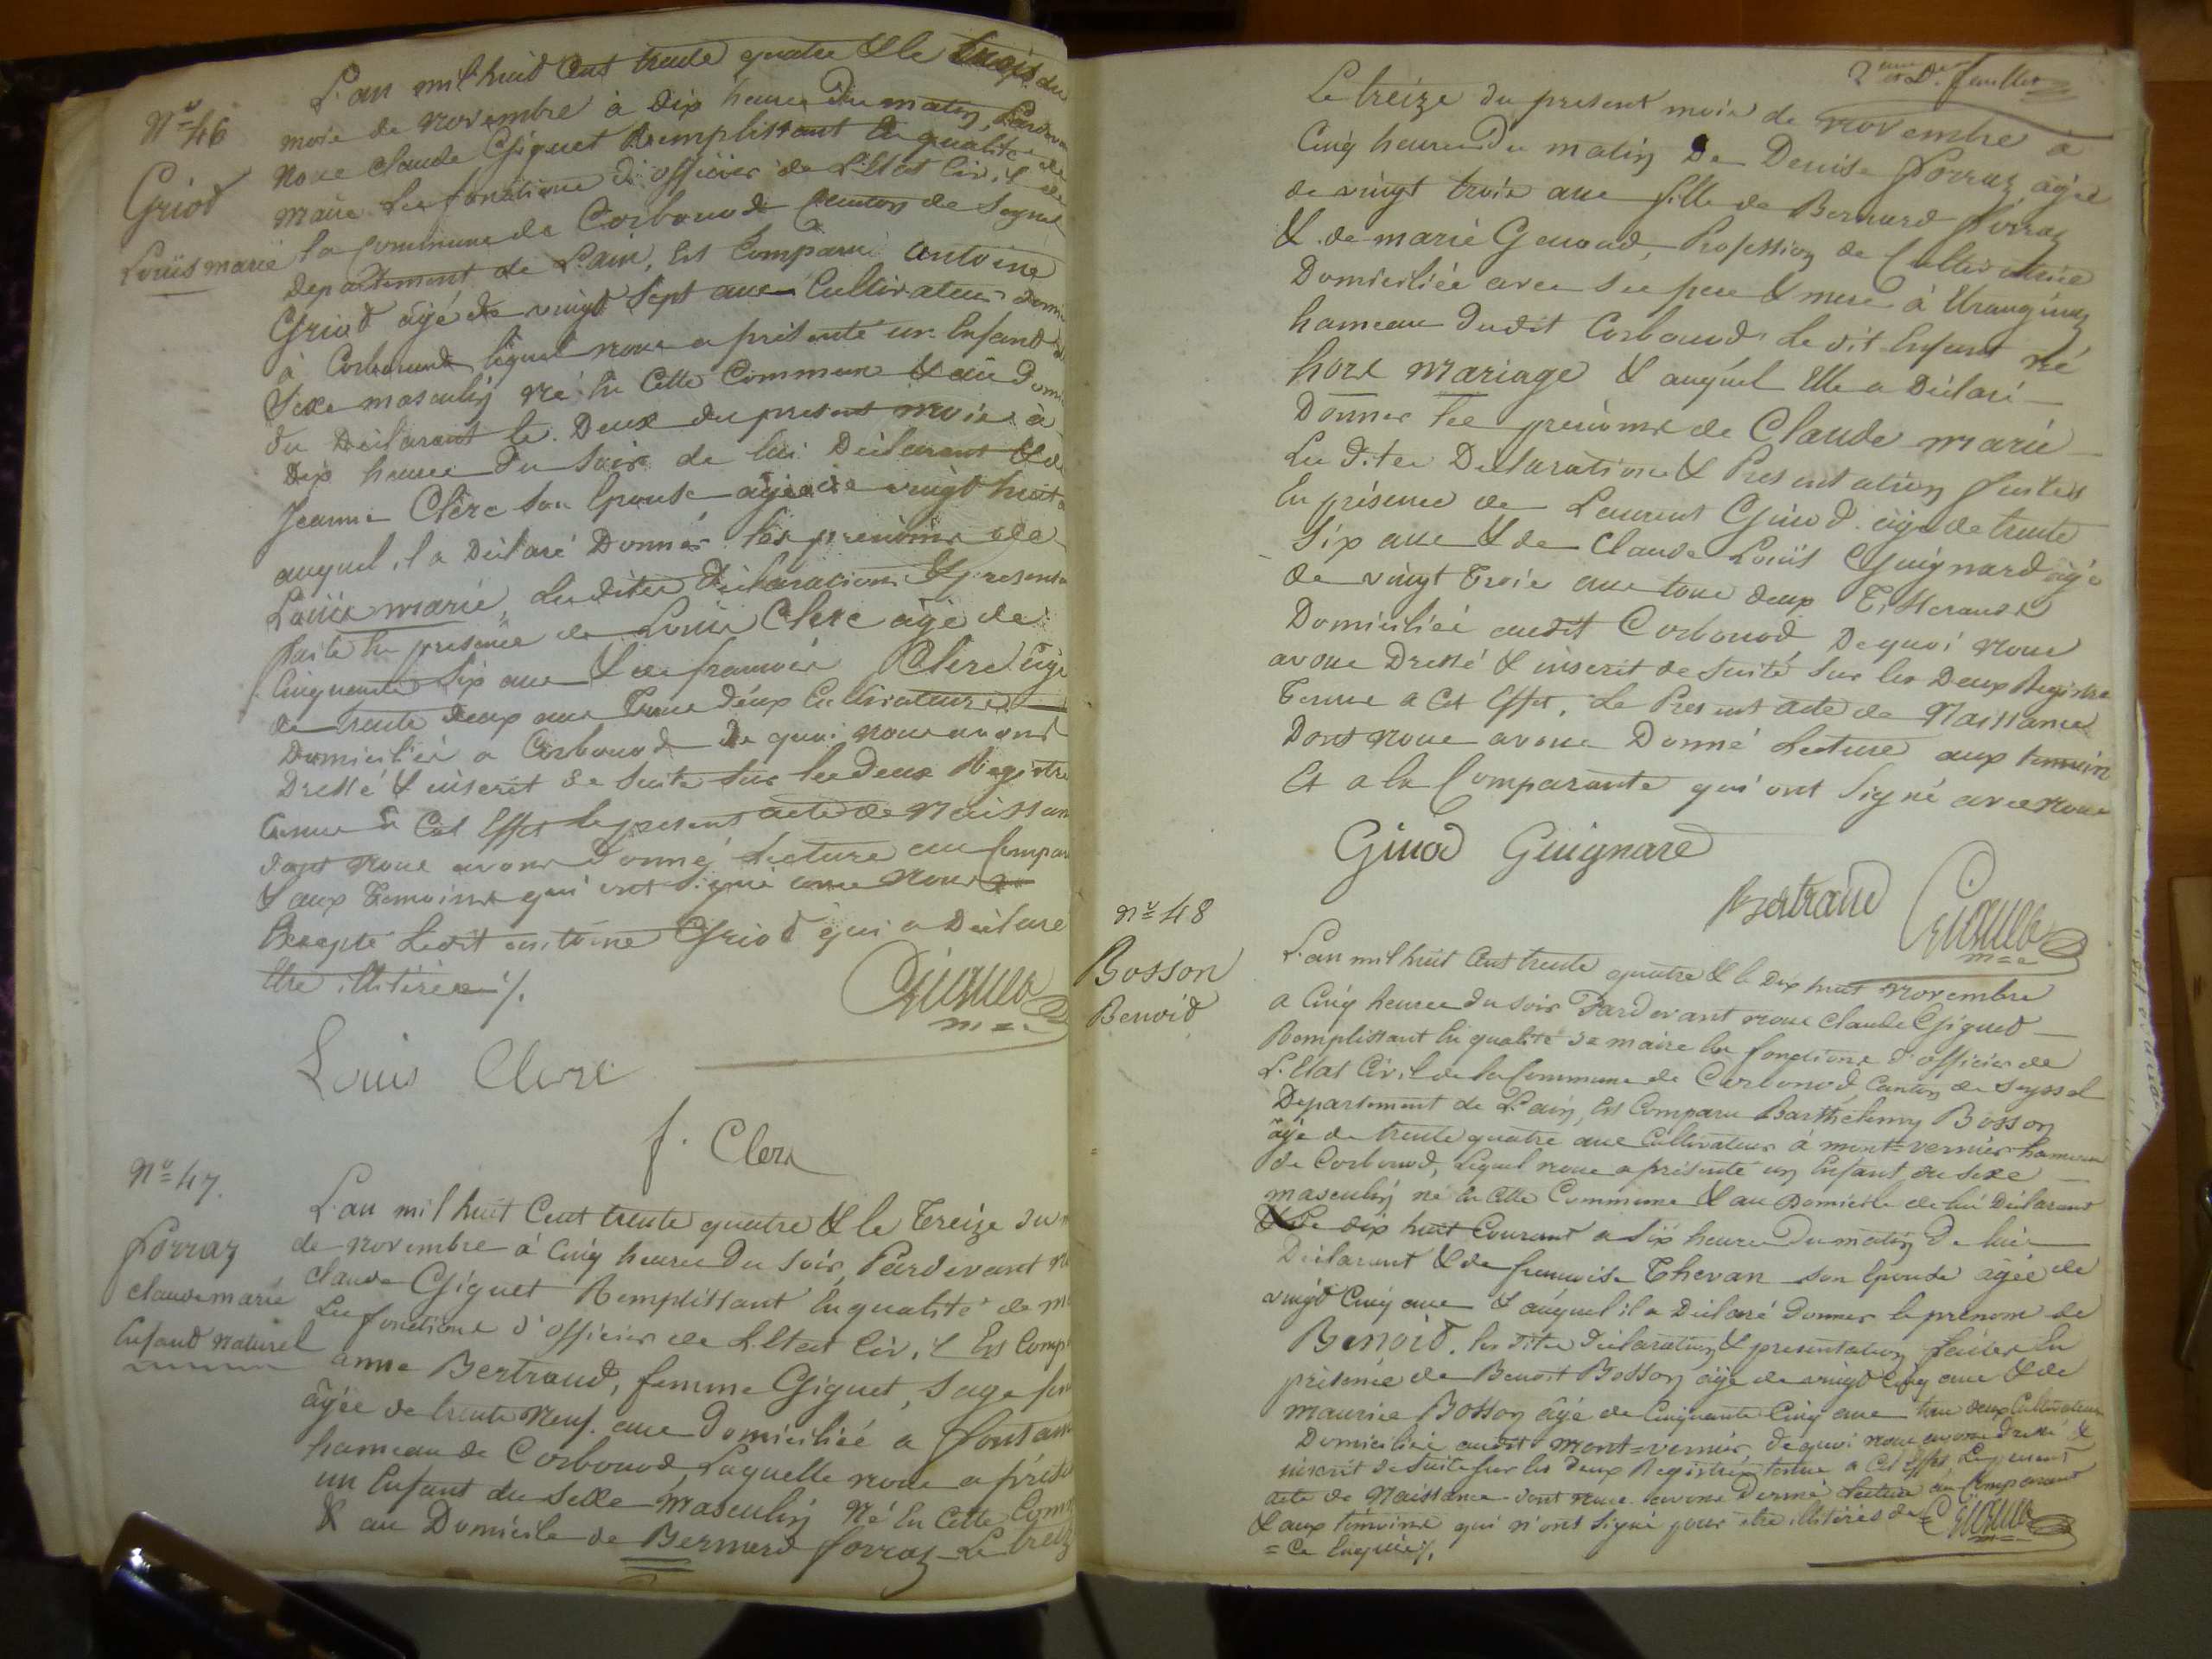 N° 46
Griod
Louis marie
L'an mil huit Cent trente quatre & le trois du
mois de novembre à Dix heures Du matin, Pardevant
nous claude Giguet Remplissant En qualité de
maire Les fonctions d'officier de L'Etat Civil de
la Commune de Corbonod Canton de Seyssel
Departement de L'ain, Est Comparu antoine
Griod âgé de vingt Sept ans Cultivateur Domi
à Corbonod lequel nous a présenté un Enfant d
Sexe masculin né En Cette Commune & au Domi
du Déclarant le Deux du present mois à
Dix heures Du Soir de lui Déclarant & de
Jeanne Clerc Son Epouse agée de vingt huit a
auquel il a Déclaré Donner les prenoms de
Louis marie, Les dites Déclaration & presenta
faite En presence de Louis Clerc âgé de
Cinquante Six ans & de francois Clerc âgé
de trente Deux ans Tous deux Cultivateurs
Domiciliés a Corbonod De quoi nous avons
Dressé & inscrit de Suite Sur les deux Registre
tenus à Cet Effet le present acte de Naissan
dont nous avons Donné Lecture au Compar
& aux Temoins qui ont Signé avec Nous
Excepté Ledit antoine Griod qui a Déclaré
Etre illitéré ./.
Giguet
m=e
Louis Clerc
f. Clerc
N° 47.
forraz
claude marie
Enfant naturel
L'an mil huit Cent trente quatre & le Treize du m
de novembre à Cinq heures Du Soir, Pardevant n
claude Giguet Remplissant En qualité de m
Les fonctions d'officier de L'Etat Civil Est Comp
anne Bertrand, femme Giguet, Sage fem
âgée de trente Neuf ans Domiciliée a
hameau de Corbonod, Laquelle nous a prés
un Enfant du Sexe masculin Né En Cette Com
& au Domicile de Bernard forraz Le treiz
2me & Dr. feuillet
Le treize du present mois de novembre à
Cinq heures Du matin De Denise forraz âgée
de vingt trois ans fille de Bernard forraz
& de marie Genoud, Profession de Cultivatrice
Domiciliée avec Ses pere & mere à
hameau dudit Corbonod Le dit Enfant né
hors mariage & auquel Elle a Déclaré
Donner les prenoms de Claude marie
Les dites Déclaration & Presentation faites
En présence de Laurent Girod âgé de trente
Six ans & de Claude Louis Guignard âgé
de vingt Trois ans tous deux Tisserands
Domiciliés audit Corbonod De quoi nous
avons Dressé & inscrit de Suite Sur les Deux Registre
Tenus a Cet Effet, Le Present acte de Naissance
Dont nous avons Donné Lecture aux temoin
Et a la Comparante qui ont Signé avec nous
Girod Guignard
Bertrand Giguet
m=e
N° 48
Bosson
Benoid
L'an mil huit Cent trente quatre & le Dix huit novembre
a Cinq heures du soir Pardevant nous claude Giguet
Remplissant En qualité de maire Les fonctions d'officier de
L'Etat Civil de la Commune de Corbonod, Canton de Seyssel
Departement de L'ain, Est Comparu Barthelemy Bosson
âgé de trente quatre ans Cultivateur à mont=vernier hameau
de Corbonod, Lequel nous a présenté un Enfant du Sexe
masculin né En Cette Commune & au Domicile de lui Déclarant
& Le dix huit Courant a Six heures Du matin De lui
Déclarant & de francoise Thevan son Epouse âgée de
vingt Cinq ans & auquel il a Déclaré Donner le prenom de
Benoid. les dites déclaration & presentation faites En
présence de Benoit Bosson âgé de vingt Cinq ans & de
maurice Bosson âgé de Cinquante Cinq ans tous deux Cultivateurs
Domiciliés audit mont=vernier de quoi nous avons dressé &
inscrit de Suite Sur les deux Registres tenus a Cet Effet Le present
acte de Naissance dont nous avons Donné Lecture au Comparant
& aux témoins qui n'ont Signé pour être illitérés de
= Ce Enquis ./.
Giguet
m=e